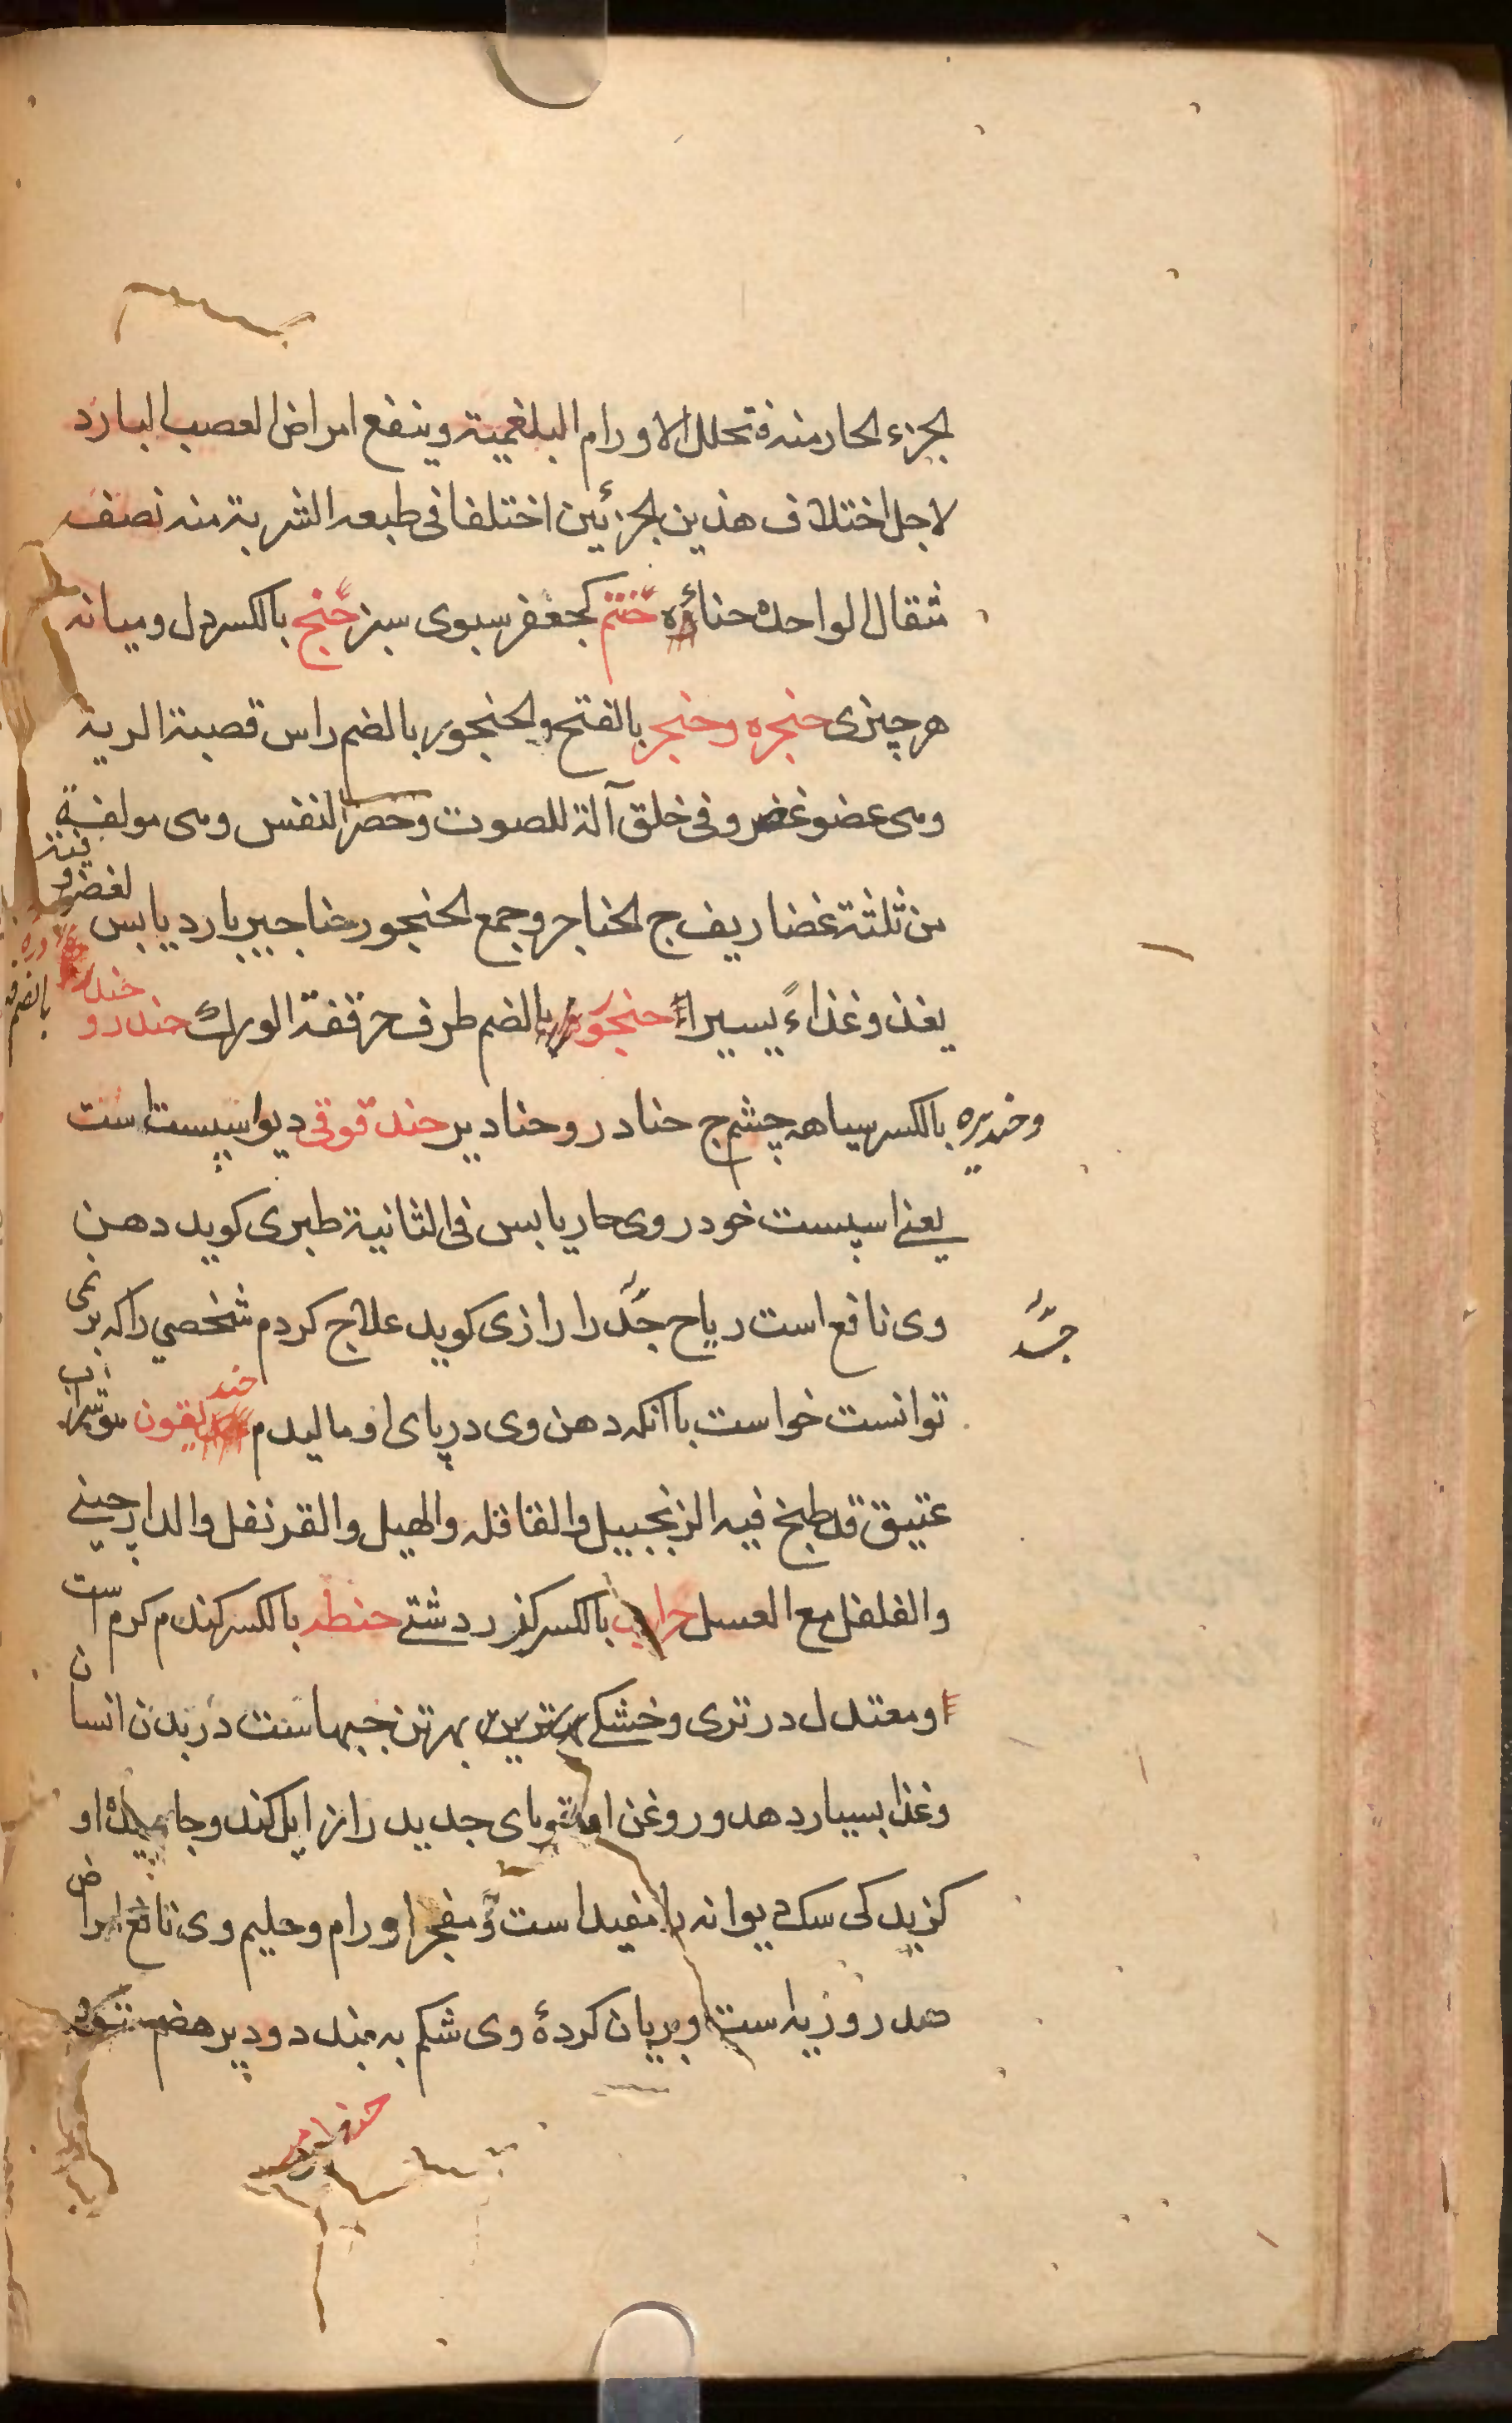 الجزء الحار منه فتحلل الاورام البلغمية وينفع امراض العصب البارد
لاجل اختلاف هذين الجزئين اختلفا فى طبعه الشربة منه نصف
مثقال الواحدة حناءة حَنْتم كجعفر سبوى سبز حِنج بالكسر دل وميانه
هر چيزى حنجره وحنجر بالفتح والحنجور بالضم راس قصبة الرية
وهى عضو غضروفى خلق آلة للصوت وحصر النفس وهى مولفة
من ثلثة غضاريف ج الحناجر وجمع الحنجور حناجير بارد يابس لغضروفيته
يغذو غذاءً يسيراً حنجور بالضم طرف حرقفة الورك حندرو
وحنديره بالكسر سياهه چشم ج حنادر وحنادير حندقوقى ديواسپست است
يعنے اسپست خودروى حار يابس فى الثانية طبرى كويد دهن
وى نافع است رياح جَدّ را رازى كويد علاج كردم شخصي را كه بر نمى
جَدّ
توانست خواست با انكه دهن وى در پاى او ماليدم حنديقون هو شراب
عتيق قد طبخ فيه الزنجبيل والقاقله والهيل والقرنفل والدارچينے
والفلفل مع العسل حراب بالكسر كزر دشتے حنطه بالكسر كندم كرم است
ومعتدل در ترى وخشكے بهترين حبهاست در بدن انسان
وغذا بسيار دهد وروغن او قوباى جديد را زايل كند وجاييده او
كزيدكى سك ديوانه را مفيد است ومفجر اورام وحليم وى نافع امراض
صدر وريه است وبريان كردۀ وى شكم به بندد ودير هضم شود